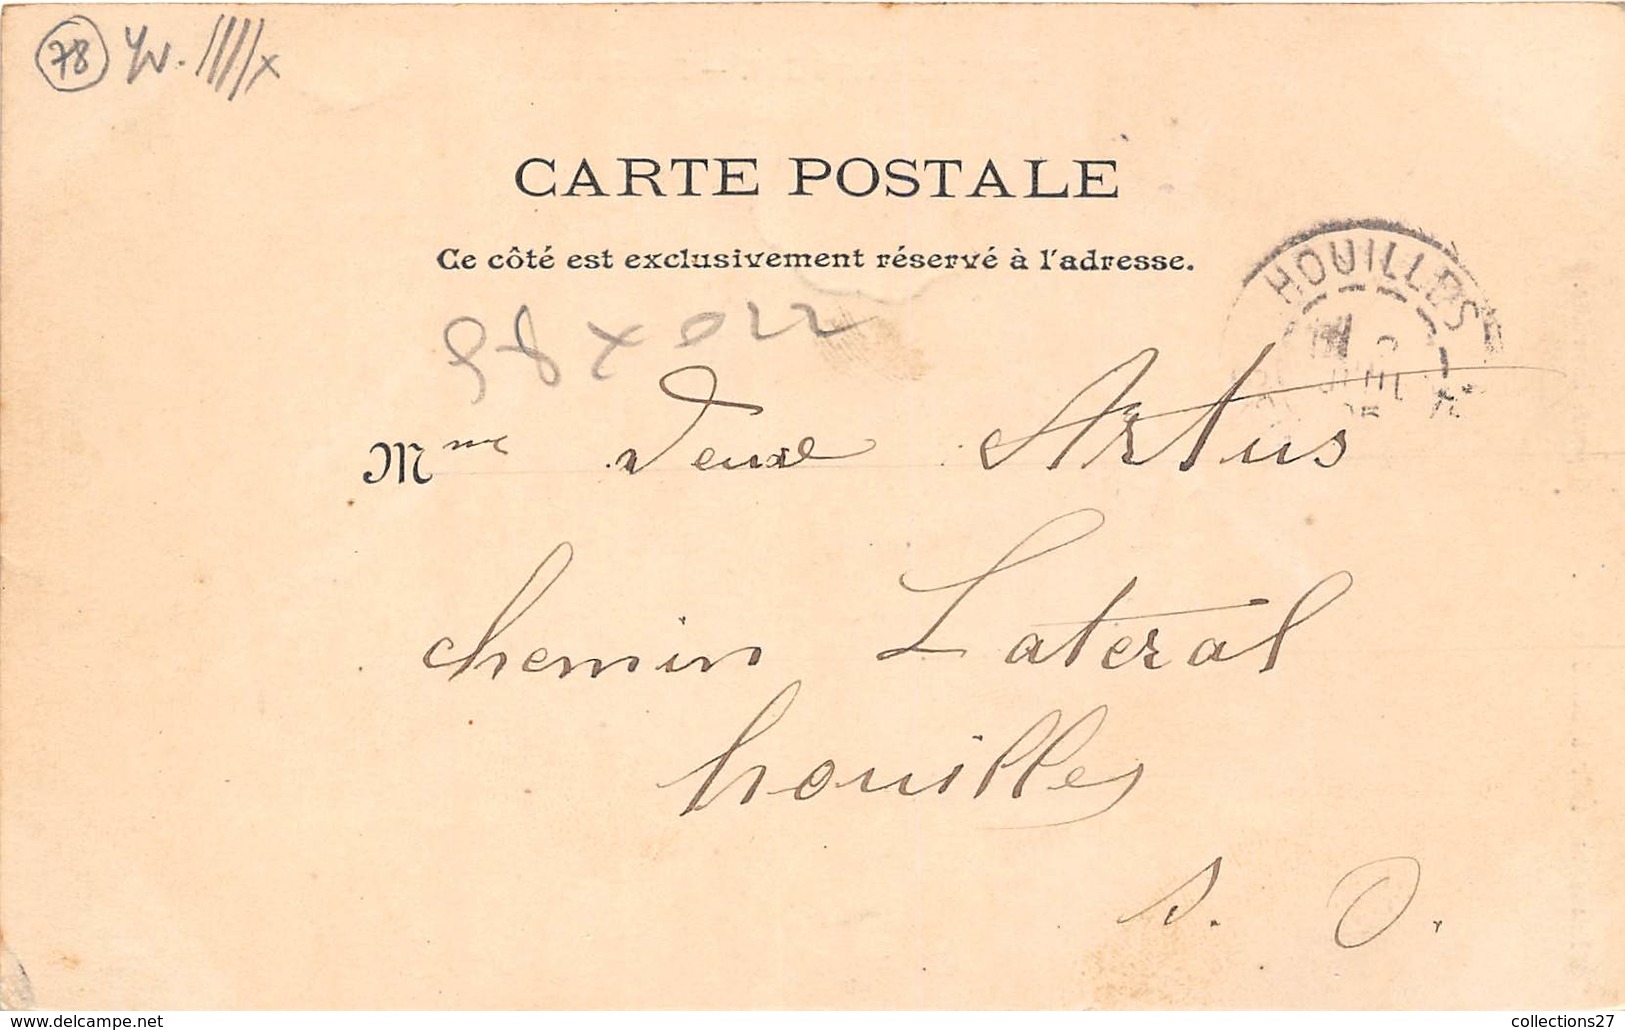 78
CARTE POSTALE
Ce côté est exclusivement réservé à l'adresse.
HOUILLES
JUIL
M me Veuve Artus
chemin Lateral
houilles
S. O.
www.delcampe.net
collections27